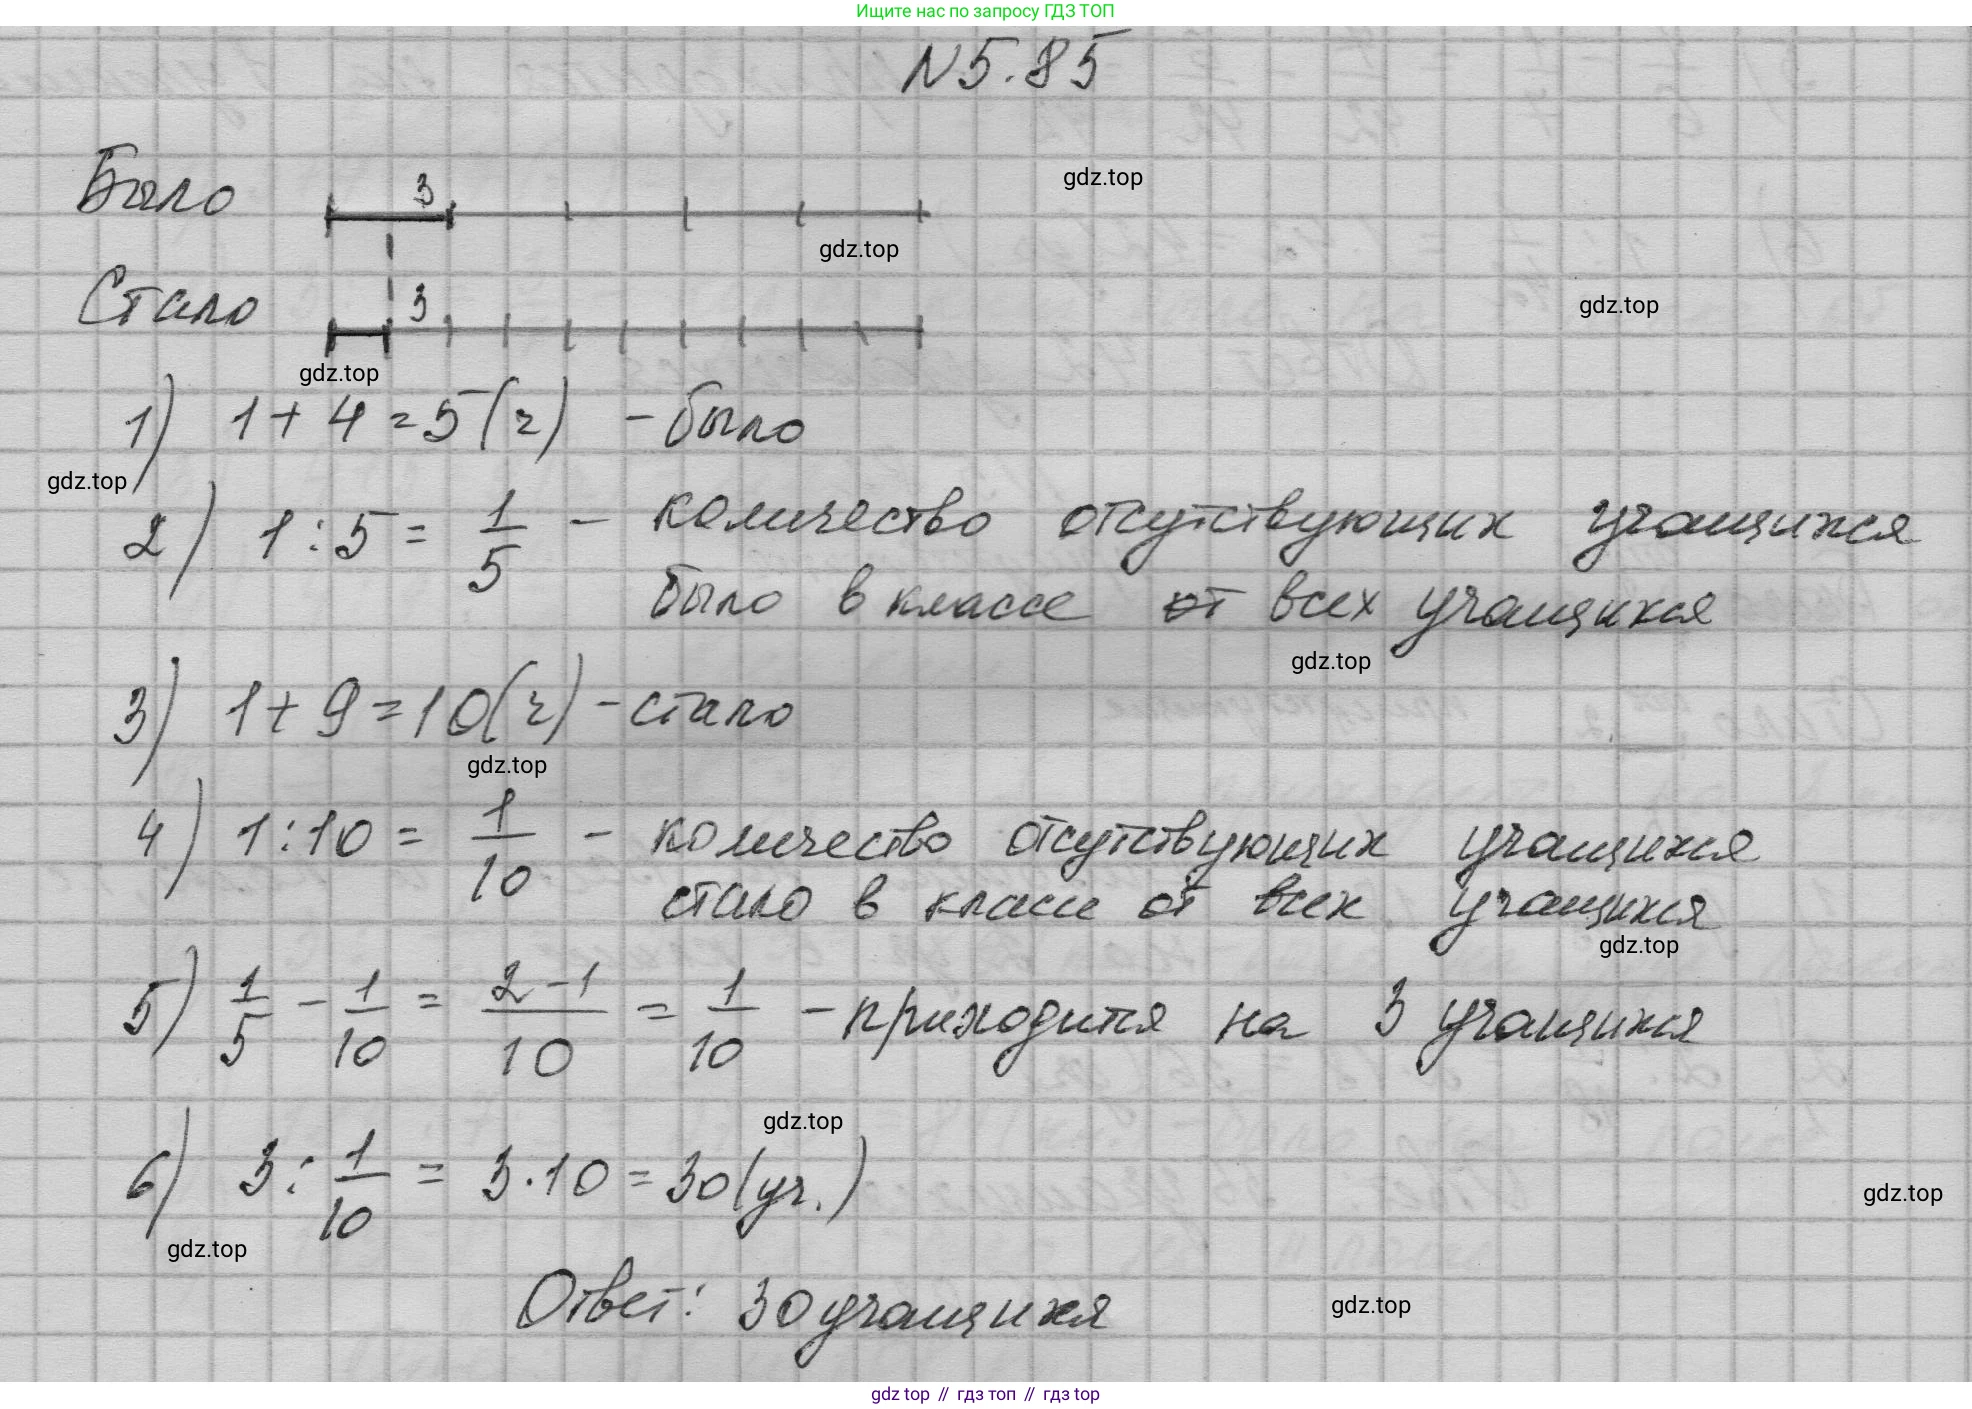 Ищите нас по запросу ГДЗ ТОП
N5.85
gdz.top
Было 3
gdz.top
Стало 3
gdz.top
gdz.top
1) 1 + 4 = 5 (ч) - было
gdz.top
2) 1 : 5 = 1/5 - количество отсутствующих учащихся
было в классе от всех учащихся
gdz.top
3) 1 + 9 = 10 (ч) - стало
gdz.top
4) 1 : 10 = 1/10 - количество отсутствующих учащихся
стало в классе от всех учащихся
gdz.top
5) 1/5 - 1/10 = (2 - 1)/10 = 1/10 - приходится на 3 учащихся
gdz.top
6) 3 : 1/10 = 3 · 10 = 30 (уч.)
gdz.top
gdz.top
Ответ: 30 учащихся
gdz.top
gdz top // гдз топ // гдз top